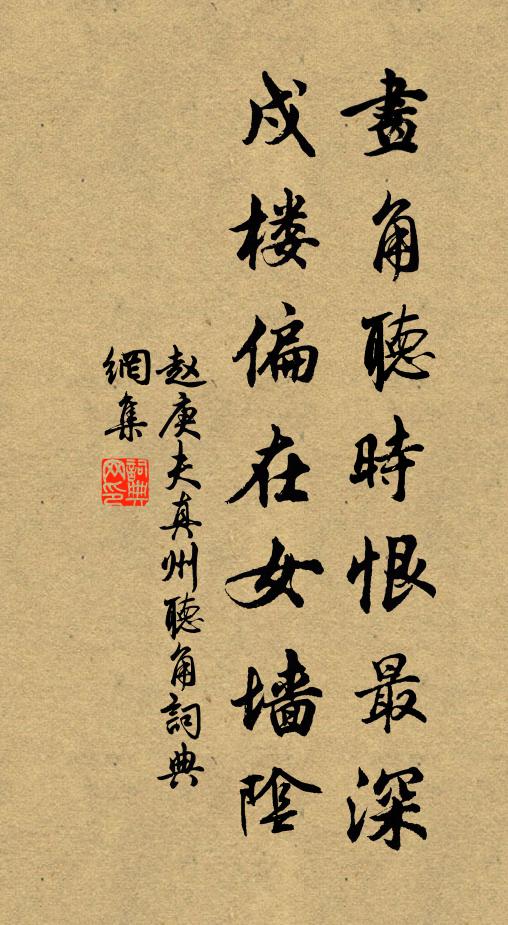 畫角聽時恨最深
戍楼偏在女墻陰
赵庚夫真州聽角詞典
網集
詞典网印